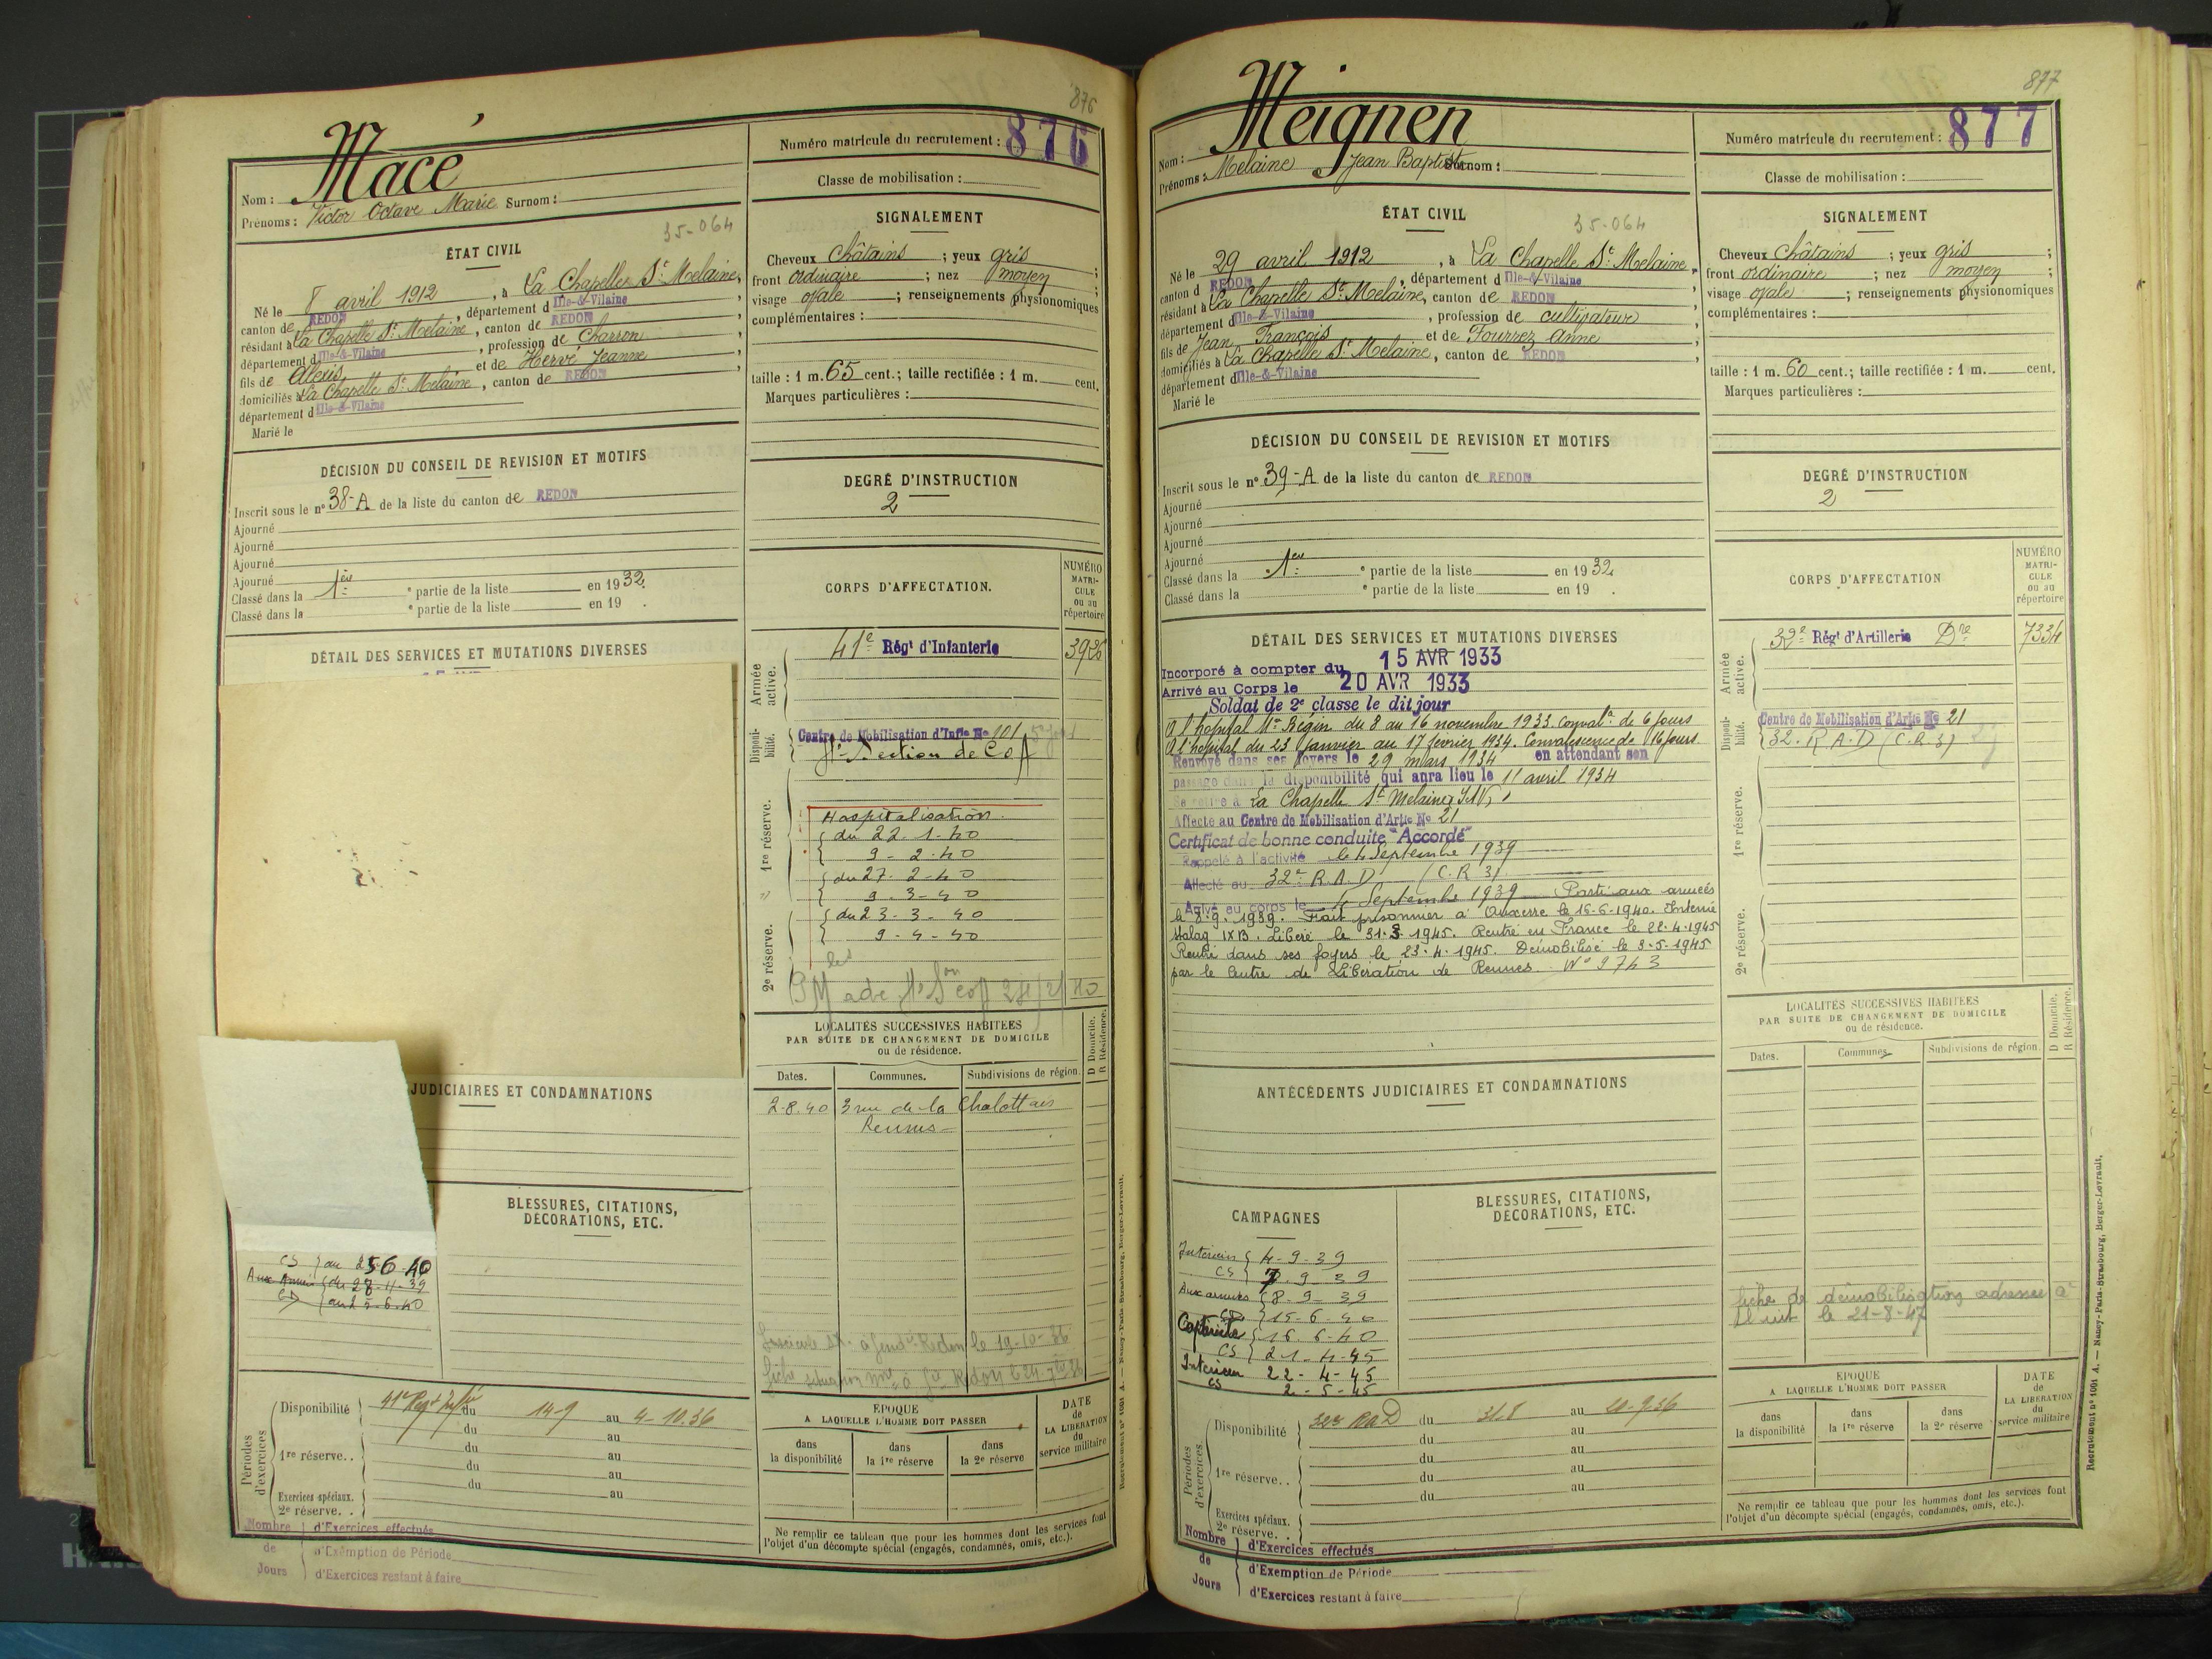 876
Macé
Nom :
Prénoms : Victor Octave Marie Surnom :
Numéro matricule du recrutement : 876
Classe de mobilisation :
ÉTAT CIVIL
35-064
Né le 8 avril 1912, à La Chapelle St Melaine,
canton de REDON, département d Ille-&-Vilaine,
résidant à La Chapelle St Melaine, canton de REDON,
département d Ille-&-Vilaine, profession de Charron,
fils de Alexis et de Hervé Jeanne,
domiciliés à La Chapelle St Melaine, canton de REDON
département d Ille-&-Vilaine
Marié le
DÉCISION DU CONSEIL DE REVISION ET MOTIFS
Inscrit sous le n° 38-A de la liste du canton de REDON
Ajourné
Ajourné
Ajourné
Ajourné
Classé dans la 1ère e partie de la liste en 1932.
Classé dans la e partie de la liste en 19 .
DÉTAIL DES SERVICES ET MUTATIONS DIVERSES
JUDICIAIRES ET CONDAMNATIONS
BLESSURES, CITATIONS,
DÉCORATIONS, ETC.
CS au 25 6 40
Aux Armées du 28-11-39
CD au 25-6-40
Périodes d'exercices
Disponibilité 41e Regt Inftie du 14-9 au 4-10.36
du au
1re réserve.. du au
du au
du au
Exercices spéciaux.
2e réserve. . au
Nombre de Jours
d'Exercices effectués
d'Exemption de Période
d'Exercices restant à faire
SIGNALEMENT
Cheveux châtains ; yeux gris ;
front ordinaire ; nez moyen ;
visage ovale ; renseignements physionomiques
complémentaires :
taille : 1 m. 65 cent.; taille rectifiée : 1 m. cent.
Marques particulières :
DEGRÉ D'INSTRUCTION
2
CORPS D'AFFECTATION.
NUMÉRO MATRICULE ou au répertoire
Armée active.
41e Régt d'Infanterie 3926
Disponibilité.
Centre de Mobilisation d'Infie No 101
Section de
1re réserve.
Hospitalisation.
du 22.1-40
9-2-40
du 27.2-40
9.3-40
du 23-3-40
9-4-40
2e réserve.
LOCALITÉS SUCCESSIVES HABITÉES
PAR SUITE DE CHANGEMENT DE DOMICILE
ou de résidence.
D Domicile. R Résidence.
Dates. Communes. Subdivisions de région.
2-8-40 3 rue de la Chalottais
Rennes
ÉPOQUE
A LAQUELLE L'HOMME DOIT PASSER
dans la disponibilité
dans la 1re réserve
dans la 2e réserve
DATE de LA LIBÉRATION du service militaire
Ne remplir ce tableau que pour les hommes dont les services font
l'objet d'un décompte spécial (engagés, condamnés, omis, etc.).
Recrutement n° 1001 A. — Nancy-Paris-Strasbourg, Berger-Levrault.
877
Meignen
Nom :
Prénoms : Melaine Jean Baptiste Surnom :
Numéro matricule du recrutement : 877
Classe de mobilisation :
ÉTAT CIVIL
35-064
Né le 29 avril 1912, à La Chapelle St Melaine,
canton d REDON, département d Ille-&-Vilaine,
résidant à La Chapelle St Melaine, canton de REDON,
département d Ille-&-Vilaine, profession de cultivateur,
fils de Jean François et de Fourrez Anne,
domiciliés à La Chapelle St Melaine, canton de REDON
département d Ille-&-Vilaine
Marié le
DÉCISION DU CONSEIL DE REVISION ET MOTIFS
Inscrit sous le n° 39-A de la liste du canton de REDON
Ajourné
Ajourné
Ajourné
Ajourné
Classé dans la 1ère e partie de la liste en 1932
Classé dans la e partie de la liste en 19 .
DÉTAIL DES SERVICES ET MUTATIONS DIVERSES
Incorporé à compter du 15 AVR 1933
Arrivé au Corps le 20 AVR 1933
Soldat de 2e classe le dit jour
A l'hopital Mre Bégin du 8 au 16 novembre 1933. Convalce de 6 jours
A l'hopital du 23 janvier au 17 fevrier 1934. Convalescence de 16 jours
Renvoyé dans ses foyers le 29 mars 1934 en attendant son
passage dans la disponibilité qui aura lieu le 11 avril 1934
Se retire à La Chapelle St Melaine, I&V,
Affecté au Centre de Mobilisation d'Artie No 21
Certificat de bonne conduite "Accordé"
Rappelé à l'activité le 4 Septembre 1939
Affecté au 32e R.A.D (C.R 3)
Arrivé au corps le 4 Septembre 1939 Parti aux armées
le 8.9.1939. Fait prisonnier à Auxerre le 16-6-1940. Interné
Stalag IXB. Libéré le 31.3.1945. Rentré en France le 22.4.1945
Rentré dans ses foyers le 23.4.1945. Démobilisé le 3-5-1945
par le Centre de Libération de Rennes. N° 9743
ANTÉCÉDENTS JUDICIAIRES ET CONDAMNATIONS
CAMPAGNES
Intérieur 4-9-39
CS 7.9-39
Aux armées 8-9-39
CD 15-6-40
Captivité 16.6-40
CS 21-4-45
Intérieur 22-4-45
CS 2-5-45
BLESSURES, CITATIONS,
DÉCORATIONS, ETC.
Périodes d'exercices.
Disponibilité 32e RAD du 31.8 au 20-9.36
du au
du au
1re réserve.. du au
du au
Exercices spéciaux.
2e réserve. .
Nombre de Jours
d'Exercices effectués
d'Exemption de Période
d'Exercices restant à faire
SIGNALEMENT
Cheveux châtains ; yeux gris ;
front ordinaire ; nez moyen ;
visage ovale ; renseignements physionomiques
complémentaires :
taille : 1 m. 60 cent.; taille rectifiée : 1 m. cent.
Marques particulières :
DEGRÉ D'INSTRUCTION
2
CORPS D'AFFECTATION
NUMÉRO MATRICULE ou au répertoire
Armée active.
32e Régt d'Artillerie Dre 7334
Disponibilité.
Centre de Mobilisation d'Artie No 21
32. R.A.D (C.R.3)
1re réserve.
2e réserve.
LOCALITÉS SUCCESSIVES HABITÉES
PAR SUITE DE CHANGEMENT DE DOMICILE
ou de résidence.
D Domicile. R Résidence.
Dates. Communes. Subdivisions de région.
fiche de démobilisation adressée à
le 21-8-47
ÉPOQUE
A LAQUELLE L'HOMME DOIT PASSER
dans la disponibilité
dans la 1re réserve
dans la 2e réserve
DATE de LA LIBÉRATION du service militaire
Ne remplir ce tableau que pour les hommes dont les services font
l'objet d'un décompte spécial (engagés, condamnés, omis, etc.).
Recrutement n° 1001 A. — Nancy-Paris-Strasbourg, Berger-Levrault.